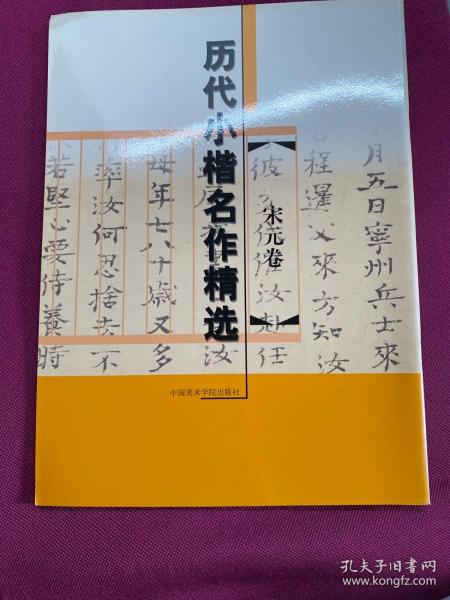 历代小楷名作精选
【宋元卷】
月五日寧州兵士來
程
來方知汝
彼
催汝赴任
汝
母年七八十歲又多
率汝何忍捨去不
若堅心要侍養時
中国美术学院出版社
孔夫子旧书网
www.kongfz.com